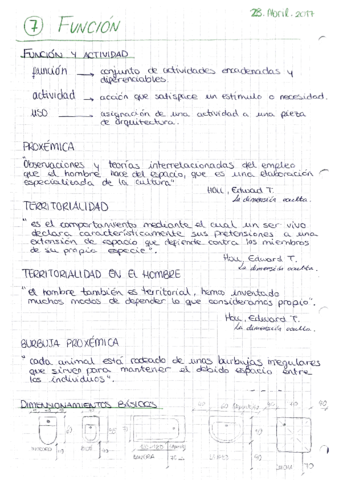 28. Abril. 2017
7 FUNCIÓN
FUNCIÓN Y ACTIVIDAD
función → conjunto de actividades encadenadas y
diferenciables.
actividad → acción que satisface un estímulo o necesidad.
USO → asignación de una actividad a una pieza
de arquitectura.
PROXÉMICA
"Observaciones y teorías interrelacionadas del empleo
que el hombre hace del espacio, que es una elaboración
especializada de la cultura".
HALL, Edward T.
La dimensión oculta.
TERRITORIALIDAD
"es el comportamiento mediante el cual un ser vivo
declara característicamente sus pretensiones a una
extensión de espacio que defiende contra los miembros
de su propia especie".
HALL, Edward T.
La dimensión oculta.
TERRITORIALIDAD EN EL HOMBRE
"el hombre también es territorial, hemos inventado
muchos modos de defender lo que consideramos propio".
HALL, Edward T.
La dimensión oculta.
BURBUJA PROXÉMICA
"cada animal está rodeado de unas burbujas irregulares
que sirven para mantener el debido espacio entre
los individuos".
DIMENSIONAMIENTOS BÁSICOS
INODORO
BIDÉ
BAÑERA